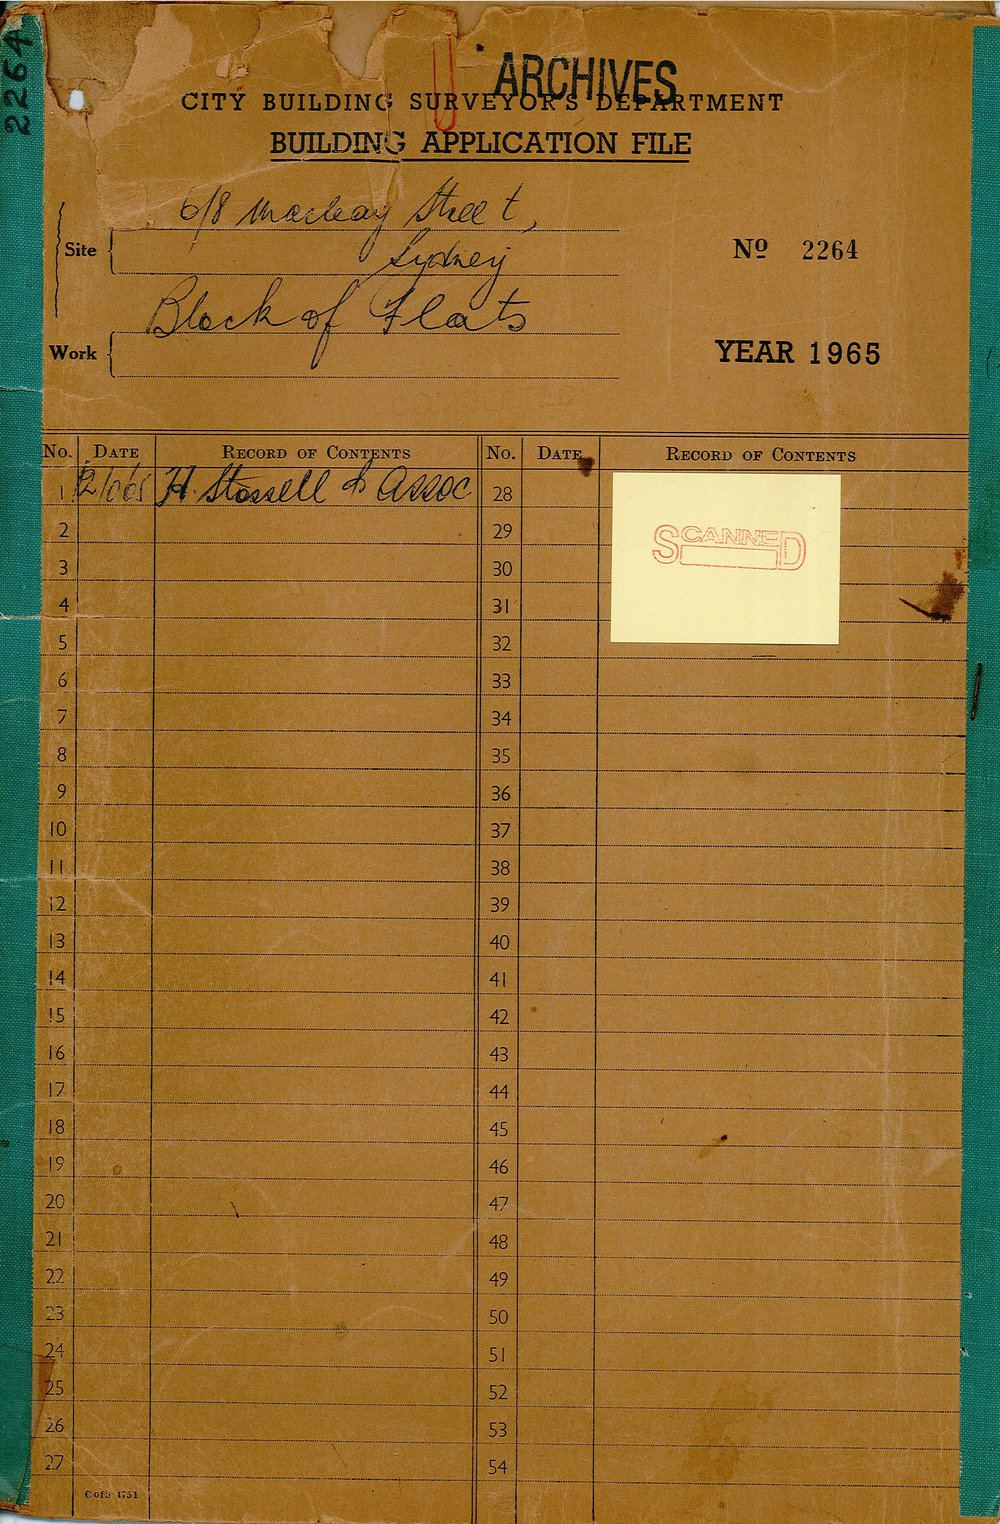 2264
ARCHIVES
CITY BUILDING SURVEYOR'S DEPARTMENT
BUILDING APPLICATION FILE
6/8 Macleay Street,
Site
Sydney
Nº 2264
Block of Flats
Work
YEAR 1965
No. DATE RECORD OF CONTENTS No. DATE RECORD OF CONTENTS
1 H. Stossell & Assoc 28
SCANNED
2 29
3 30
4 31
5 32
6 33
7 34
8 35
9 36
10 37
11 38
12 39
13 40
14 41
15 42
16 43
17 44
18 45
19 46
20 47
21 48
22 49
23 50
24 51
25 52
26 53
27 54
C of S 1751